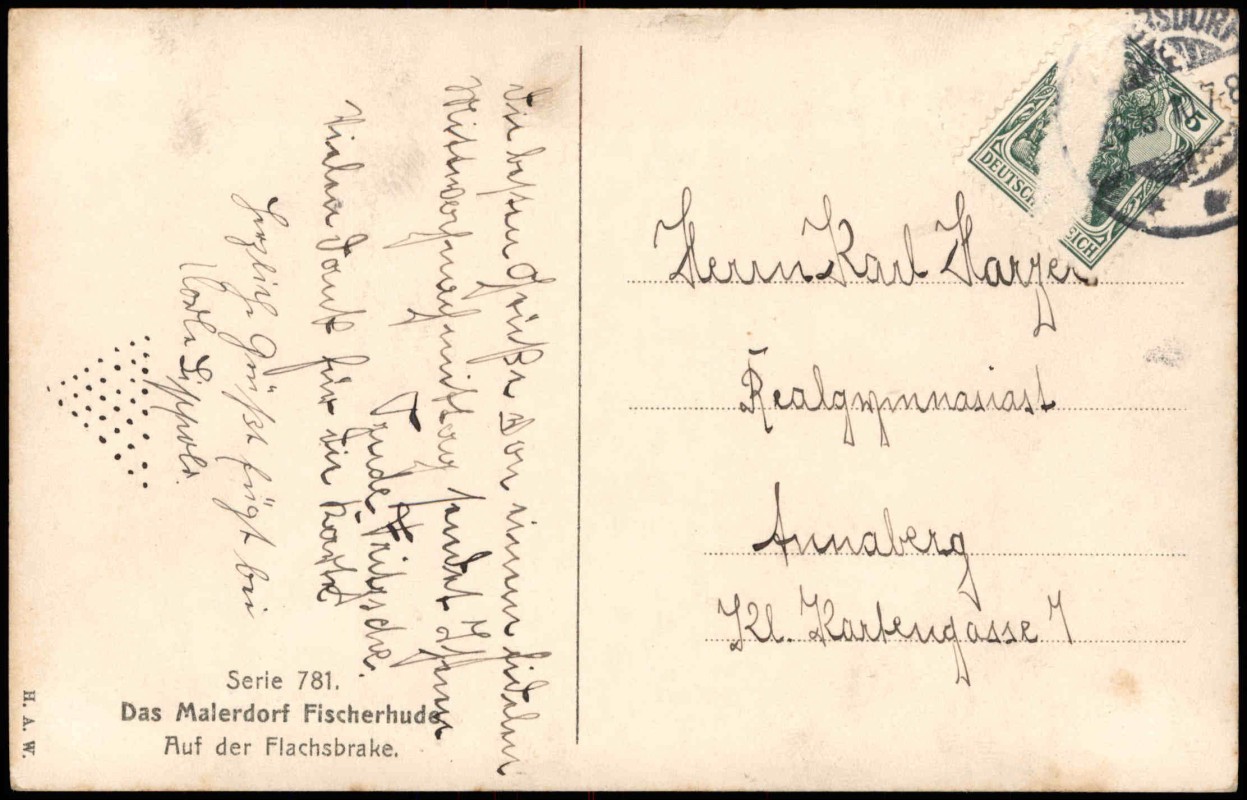 Die besten Grüße von einem fidelen
Mittwochnachmittag sendet Ihnen
Trude Fritzsche.
Vielen Dank für die Karte
Herzliche Grüße fügt bei
Lippold.
Serie 781.
Das Malerdorf Fischerhude
Auf der Flachsbrake.
H. A. W.
DEUTSCH
EICH
5
5
RSDORF
7-8
Herrn Karl Harzer
Realgymnasiast
Annaberg
Kl. Kartengasse 7